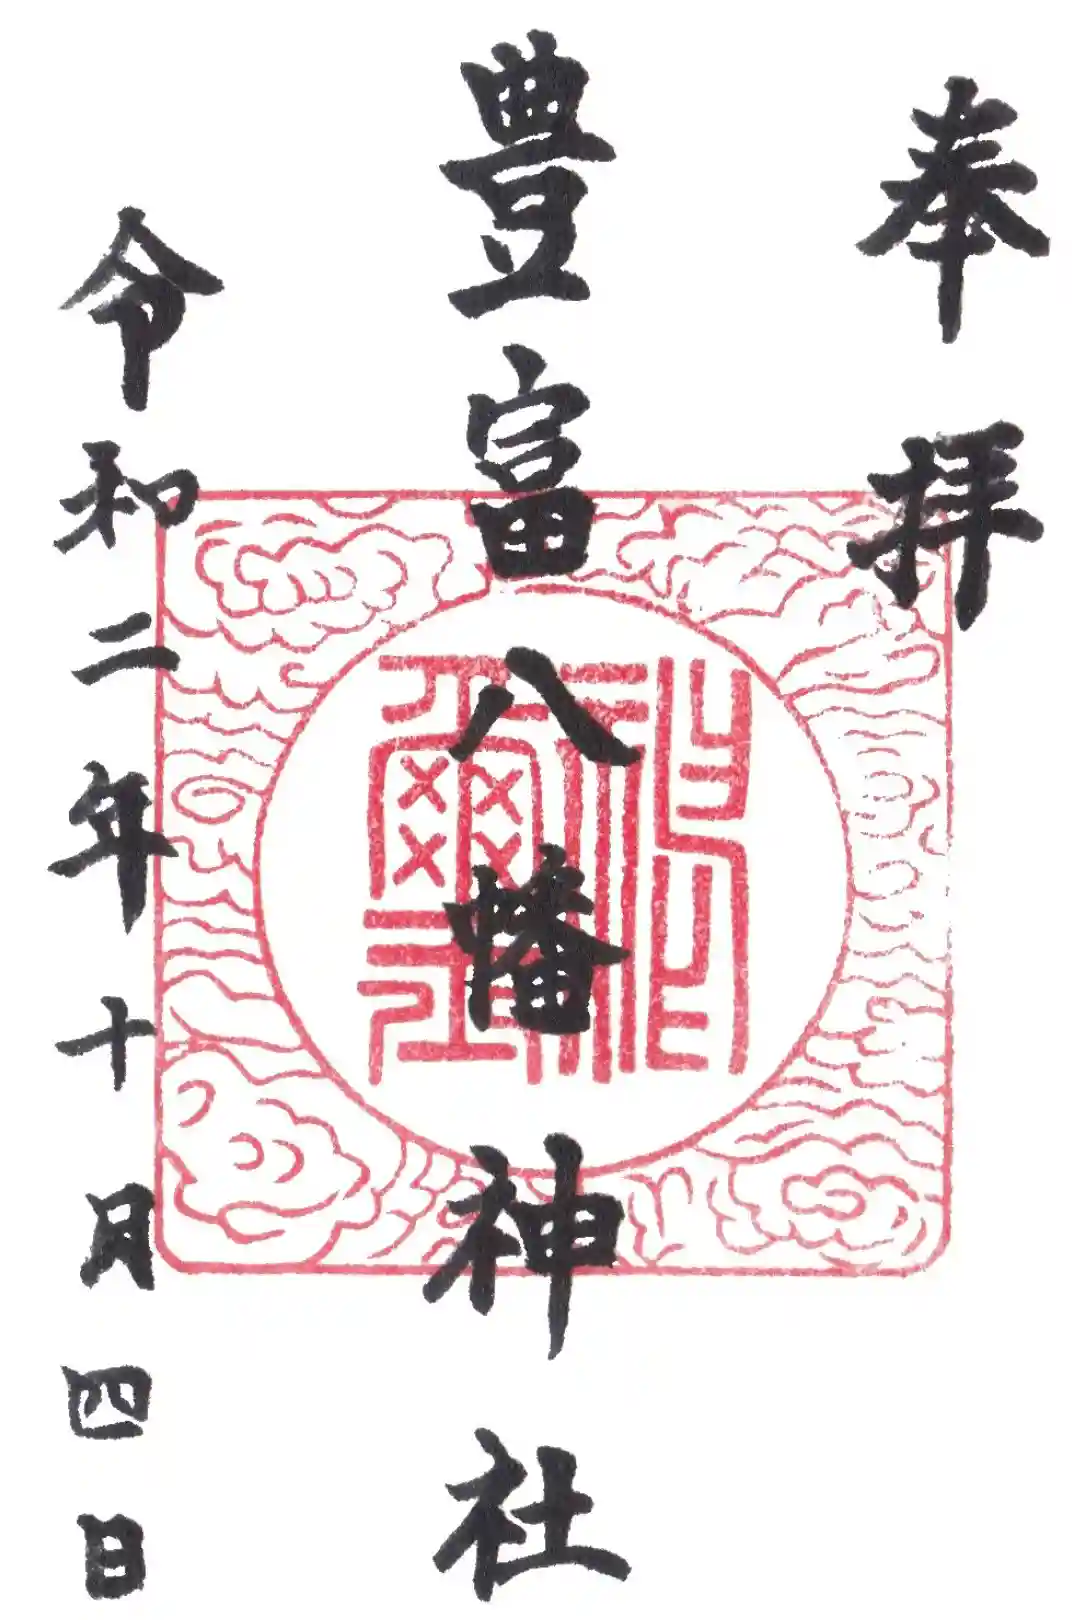 奉拝
豊富八幡神社
令和二年十月四日